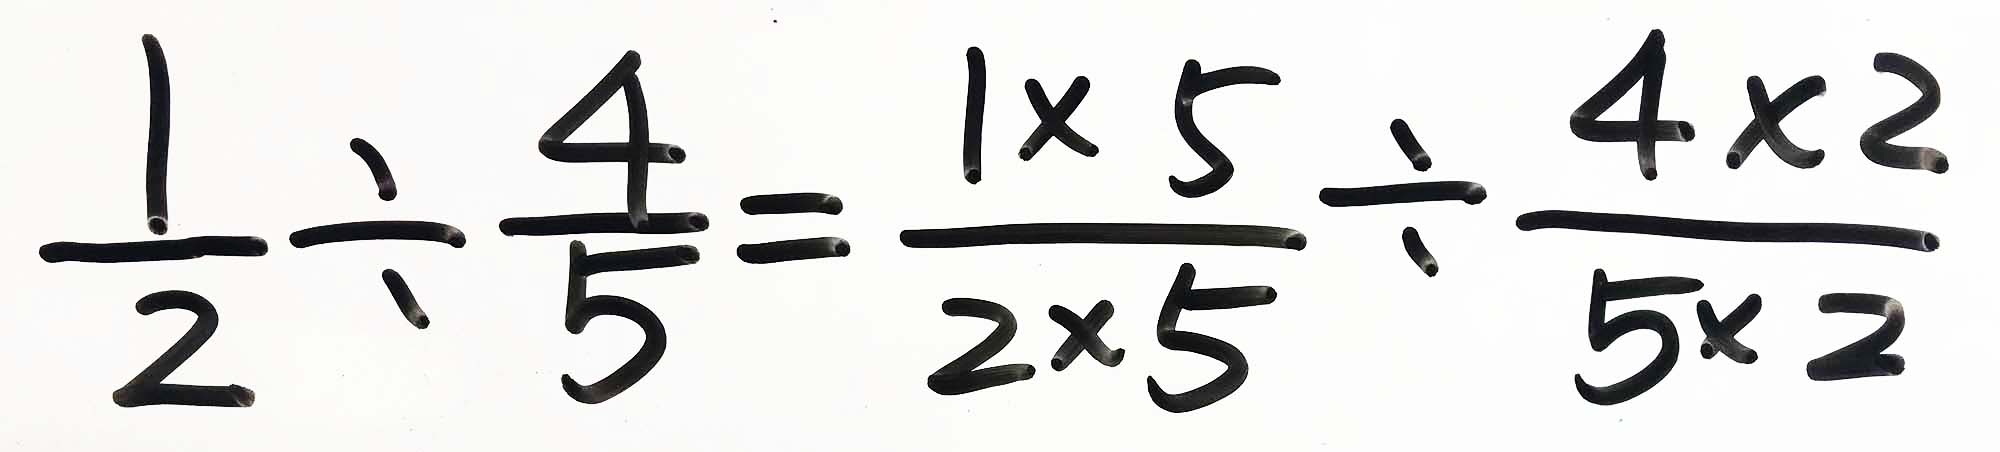 1/2 ÷ 4/5 = 1×5/2×5 ÷ 4×2/5×2